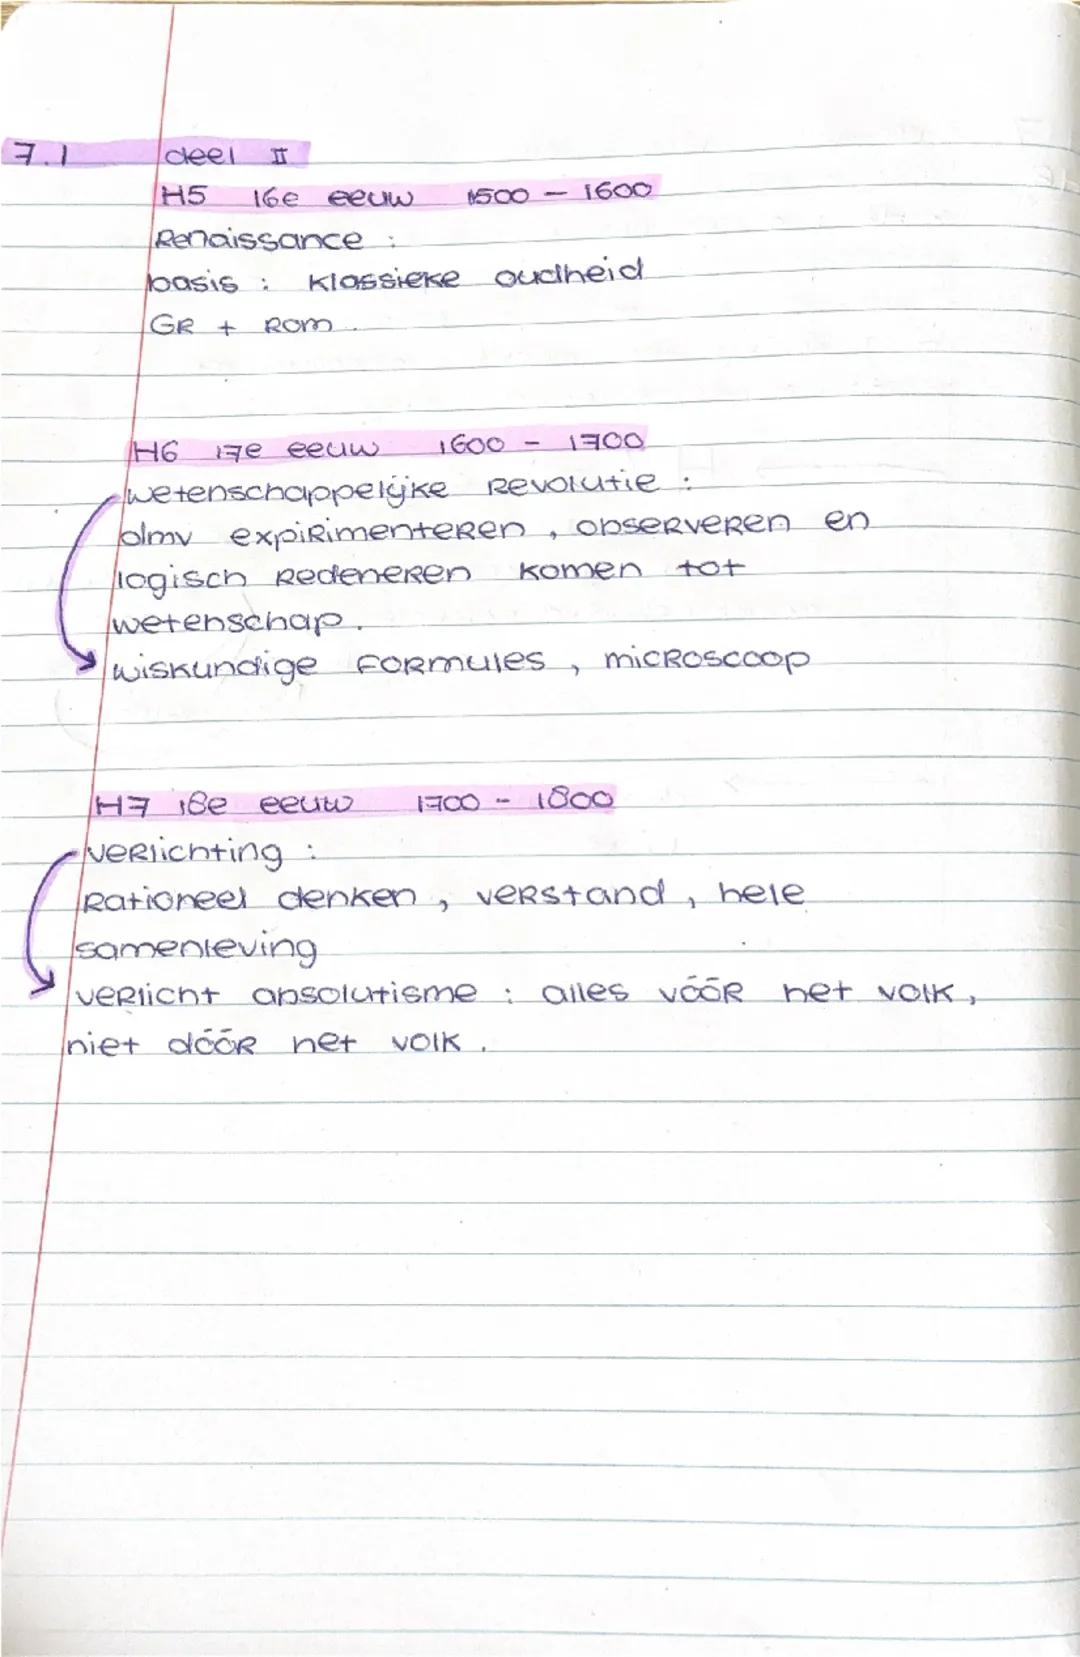 7.1 deel II
H5 16e eeuw 1500 - 1600
Renaissance :
basis : klassieke oudheid
GR + ROM.
H6 17e eeuw 1600 - 1700
wetenschappelijke Revolutie :
dmv expirimenteren, observeren en
logisch Redeneren komen tot
wetenschap.
wiskundige formules, microscoop
H7 18e eeuw 1700 - 1800
verlichting :
Rationeel denken, verstand, hele
samenleving
verlicht absolutisme : alles vóór het volk,
niet dóór het volk.